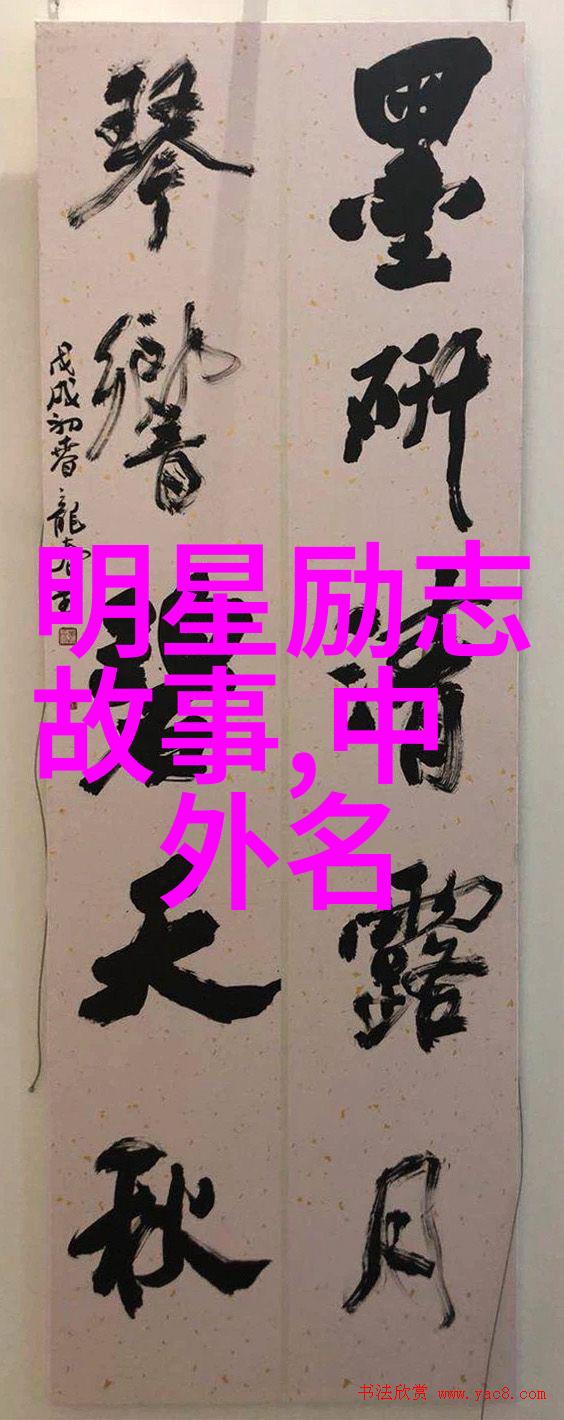 墨研清露月
琴響碧天秋
戊戌初春 龍
明星励志
故事,中
外名
书法欣赏 www.yac8.com